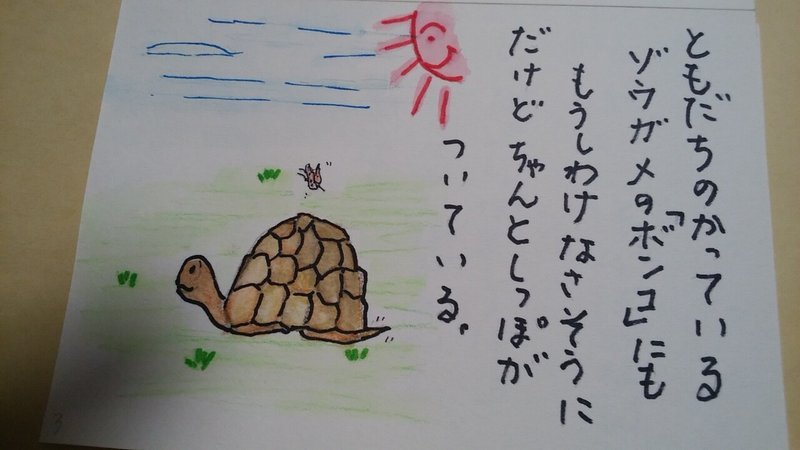 ともだちのかっている
ゾウガメの「ボンコ」にも
もうしわけなさそうに
だけど ちゃんとしっぽが
ついている。
3